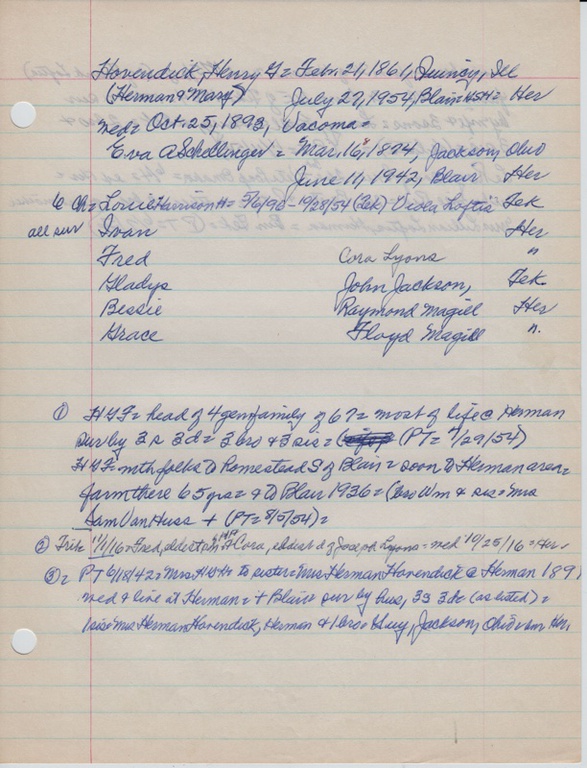 Hovendick, Henry G = Febr. 21, 1861, Quincy, Ill
(Herman & Mary) July 27, 1954, Blair HSH = Her
wed = Oct. 25, 1893, Vacoma =
Eva A Schellinger = Mar. 16, 1874, Jackson, Ohio
June 11, 1942, Blair Her
6 Ch = Louie Harrison H = 5/6/90 - 10/28/54 (Tek) Viola Loftis Tek
all sur Ivan Her
Fred Cora Lyons "
Gladys John Jackson, Tek.
Bessie Raymond Magill Her
Grace Floyd Magill ".
① HGF = head of 4 gem family of 67 = most of life @ Herman
sur by 3 s 3 d = 3 bro & 3 sis = (PT = /29/54)
HGF = m th folks to homestead S of Blair = soon to Herman area =
farm there 65 yrs = & to Blair 1936 = (bro Wm & sis = Mrs
Sam Van Huss + (PT = 8/5/54) =
② Trib 11/1/16 = Fred, eldest of & Cora, eldest d of Joseph Lyons = wed 10/25/16 = Her.
③ = PT 6/18/42 = Mrs HGH to sister = Mrs Herman Hovendick @ Herman 189
wed & live at Herman = + Blair = sur by hus, 3s 3d (as listed) =
1 sis = Mrs Herman Hovendick, Herman & 1 bro = Guy, Jackson, Ohio = bur Her.